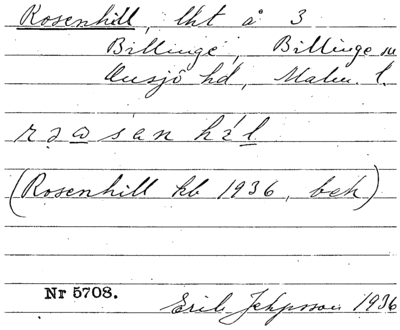 Rosenhill, lht å 3
Billinge, Billinge sn
Onsjö hd, Malm. l.
(Rosenhill kb 1936, beh)
Nr 5708.
Erik Jeppsson 1936